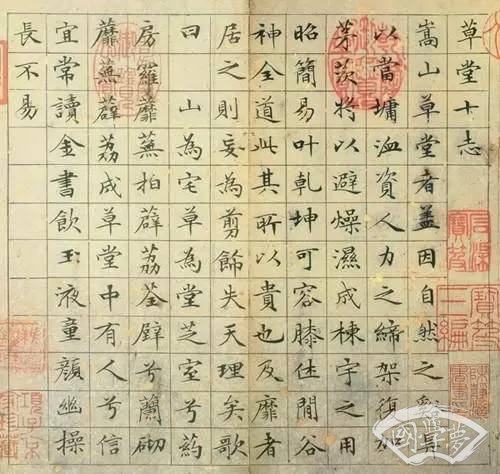 草堂十志
嵩山草堂者盖因自然之谿阜
以當墉洫資人力之締架復加
茅茨將以避燥濕成棟宇之用
昭簡易叶乾坤可容膝休閒谷
神全道此其所以貴也及靡者
居之則妄為剪飾失天理矣歌
曰 山為宅草為堂芝室兮葯
房羅蘼蕪柏薜荔荃壁兮蘭砌
蘼蕪薜荔成草堂中有人兮信
宜常讀金書飲玉液童顏幽操
長不易
國學夢